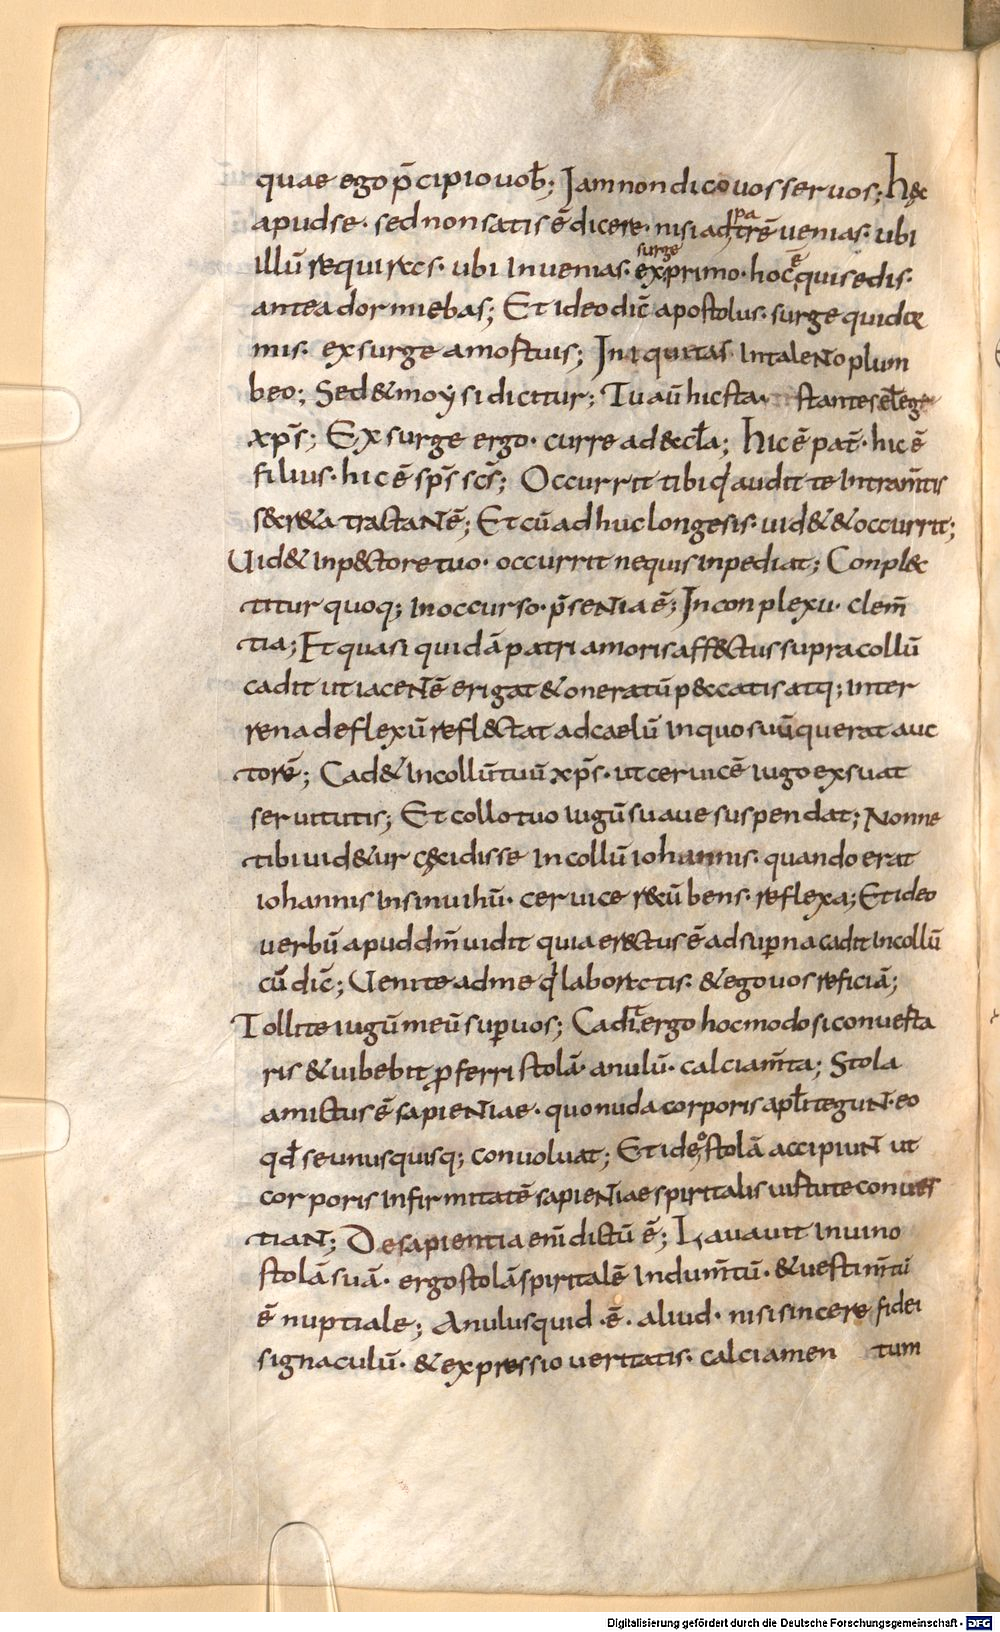 quae ego p̄cipio uob̄; Jam non dico uos seruos; h&
apud se· sed non satis ē dicere· nisi ad patrē uenias· ubi
illū requiretis· ubi inuenias· surge exprimo· hoc ē qui sedis·
antea dormiebas; Et ideo dic̄ apostolus· surge qui dor
mis· exsurge a mortuis; Iniquitas in talento plum
beo; Sed & moysi dicitur; Tu aū hic sta stantes eleg
xp̄s; Exsurge ergo· curre ad eccl̄a; hic ē pat̄· hic ē
filius· hic ē sp̄s sc̄s; Occurrit tibi q̄ audit te intra m̄tis
secr&a tractantē; Et cū adhuc longe sis· uid& & occurrit;
Uid& in p&ctore tuo· occurrit ne quis inpediat; Conpl&c
titur quoq; in occurso· p̄sentia ē; In conplexu· clem̄
tia; Et quasi quidā patri amoris aff&ctus supra collū
cadit ut iacentē erigat & oneratū p&ccatis atq; in ter
rena deflexū refl&ctat ad caelū in quo suū querat auc
torē; Cad& in collū tuū xp̄s· ut ceruicē iugo exsuat
seruitutis; Et collo tuo iugū suaue suspendat; Nonne
tibi uid&ur cecidisse in collū iohannis· quando erat
iohannis in sinu ih̄u· ceruice recūbens· reflexa; Et ideo
uerbū apud dm̄ uidit quia er&ctus ē ad sup̄na cadit in collū
cū dic̄; Uenite ad me q̄ laboratis· & ego uos reficiā;
Tollite iugū meū sup̄ uos; Cadit ergo hoc modo si conuerta
ris & iubebit p̄ferri stolā· anulū· calciam̄ta; Stola
amictus ē sapientiae· quo nuda corporis apl̄i tegunt· eo
qd̄ se unusquisq; conuoluat; Et ideo stolā accipiunt ut
corporis infirmitatē sapientiae spiritalis uirtute conues
tiant; De sapientia eni dictū ē; Lauauit in uino
stolā suā· ergo stolā spiritalē indum̄tū· & uestim̄tū
ē nuptiale; Anulus quid· ē· aliud· nisi sincere fidei
signaculū· & expressio ueritatis· calciamen tum
Digitalisierung gefördert durch die Deutsche Forschungsgemeinschaft - DFG